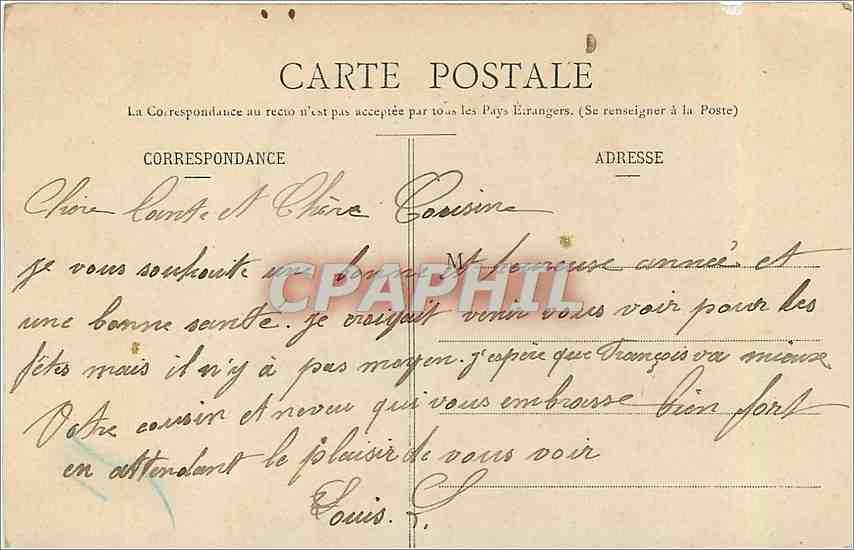 CARTE POSTALE
La Correspondance au recto n'est pas acceptée par tous les Pays Etrangers. (Se renseigner à la Poste)
CORRESPONDANCE
ADRESSE
Chère Tante et Chère Cousine
M
je vous souhaite une bonne et heureuse année et
une bonne santé. je croyait venir vous voir pour les
fêtes mais il n'y à pas moyen. j'espère que François va mieux
Votre cousin et neveu qui vous embrasse bien fort
en attendant le plaisir de vous voir
Louis. L.
CPAPHIL